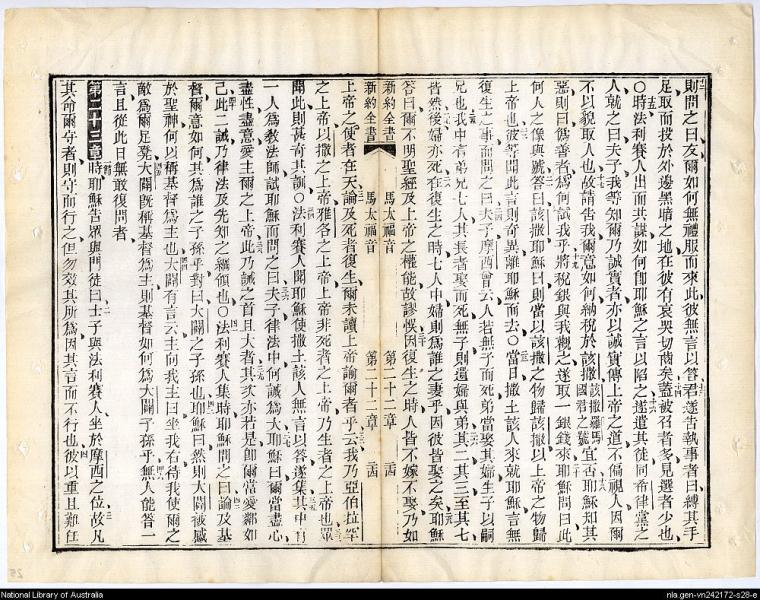 則問之曰友爾如何無禮服而來此彼無言以答君遂告執事者曰縛其手
足取而投於外邊黑暗之地在彼有哀哭切齒矣蓋被召者多見選者少也
〇時法利賽人出而共謀如何即耶穌之言以陷之遂遣其徒同希律黨之
人就之曰夫子我等知爾乃誠實者亦以誠實傳上帝之道不偏視人因爾
不以貌取人也故請告我爾意如何納稅於該撒該撒羅馬國君之號宜否耶穌知其
惡則曰僞善者爲何試我乎將稅銀與我觀之遂取一銀錢來耶穌問曰此
何人之像與號答曰該撒耶穌曰則當以該撒之物歸該撒以上帝之物歸
上帝也彼等聞此言則奇異離耶穌而去〇當日撒土該人來就耶穌言無
復生之事而問之曰夫子摩西曾云人若無子而死弟當娶其婦生子以嗣
兄也我中有弟兄七人其長者娶而死無子則遺婦與弟其二其三至其七
皆然後婦亦死在復生之時七人中婦則爲誰之妻乎因彼皆娶之矣耶穌
答曰爾不明聖經及上帝之權能故謬悞因復生之時人皆不嫁不娶乃如
新約全書 馬太福音 第二十二章 二四
新約全書 馬太福音 第二十二章 二四
上帝之使者在天論及死者復生爾未讀上帝諭爾者乎云我乃亞伯拉罕
之上帝以撒之上帝雅各之上帝上帝非死者之上帝乃生者之上帝也眾
聞此則甚奇其訓〇法利賽人聞耶穌使撒土該人無言以答遂集其中有
一人爲教法師試耶穌而問之曰夫子律法中何誡爲大耶穌曰爾當盡心
盡性盡意愛主爾之上帝此乃誡之首且大者其次亦若是即爾當愛鄰如
己此二誡乃律法及先知之綱領也〇法利賽人集時耶穌問之曰論及基
督爾意如何其爲誰之子孫乎對曰大闢之子孫也耶穌曰然則大闢被感
於聖神何以稱基督爲主也大闢有言云主向我主曰坐我右待我使爾之
敵爲爾足凳大闢既稱基督爲主則基督如何爲大闢子孫乎無人能答一
言且從此日無敢復問者
第二十三章時耶穌告眾與門徒曰士子與法利賽人坐於摩西之位故凡
其命爾守者則守而行之但勿效其所爲因其言而不行也彼以重且難任
National Library of Australia
nla.gen-vn242172-s28-e